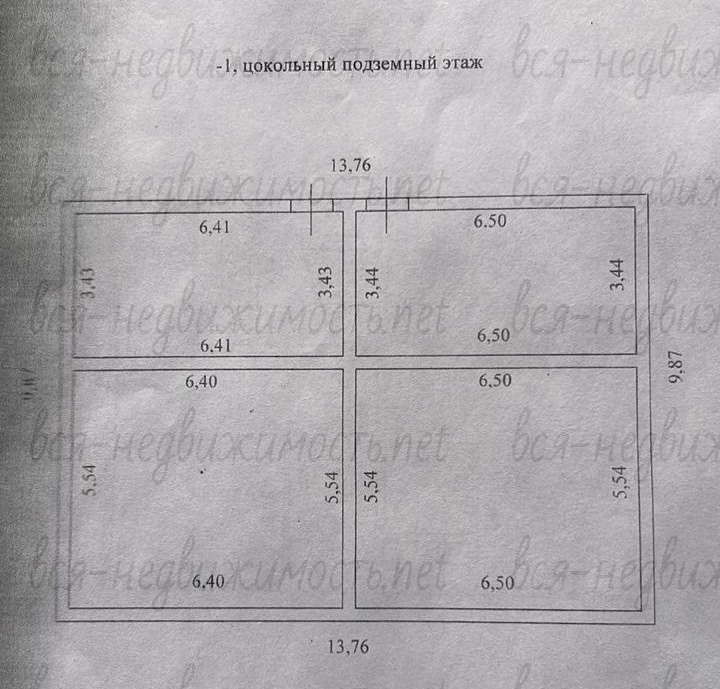 -1, цокольный подземный этаж
13,76
6,41
6.50
3,43
3,43
3,44
3,44
6,41
6,50
6,40
6,50
9,87
5,54
5,54
5,54
5,54
6,40
6,50
13,76
вся-недвижимость.net